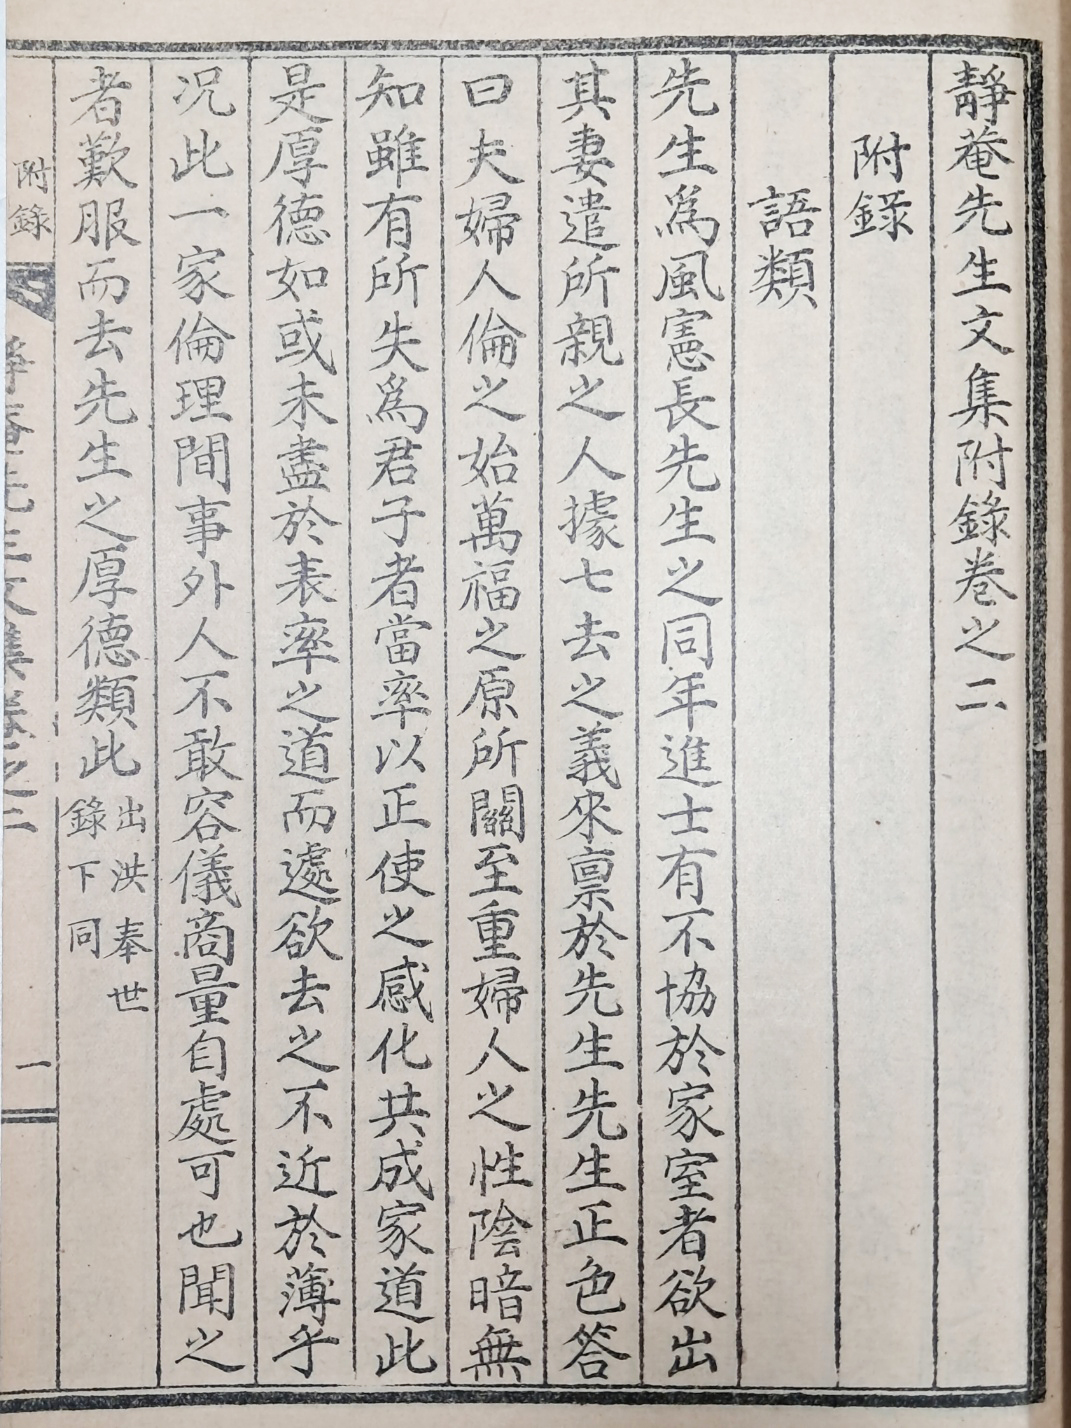 靜菴先生文集附錄卷之二
附錄
語類
先生爲風憲長先生之同年進士有不協於家室者欲出
其妻遣所親之人據七去之義來禀於先生先生正色答
曰夫婦人倫之始萬福之原所關至重婦人之性陰暗無
知雖有所失爲君子者當率以正使之感化共成家道此
是厚德如或未盡於表率之道而遽欲去之不近於薄乎
况此一家倫理間事外人不敢容儀商量自處可也聞之
者歎服而去先生之厚德類此出洪奉世錄下同
附錄 靜菴先生文集卷之二 一